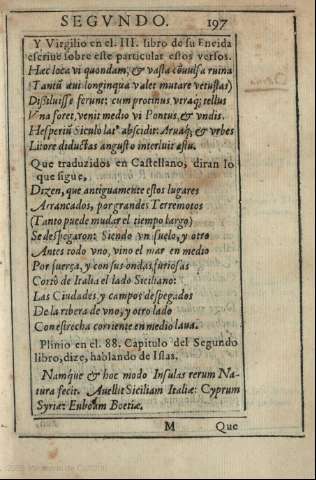 SEGVNDO. 197
Y Virgilio en el. III. libro de su Eneida
escriue sobre este particular estos versos.
Hæc loca vi quondam, & vasta cōuulsa ruina
(Tantū æui longinqua valet mutare vetustas)
Dissiluisse ferunt: cum protinus vtraq; tellus
Vna foret, venit medio vi Pontus, & vndis
Hesperiū Siculo lat⁹ abscidit: Aruaq; & vrbes
Litore diductas angusto interluit æstu.
Que traduzidos en Castellano, diran lo
que sigue,
Dizen, que antiguamente estos lugares
Arrancados, por grandes Terremotos
(Tanto puede mudar el tiempo largo)
Se despegaron: Siendo vn suelo, y otro
Antes todo vno, vino el mar en medio
Por fuerça, y con sus ondas furiosas
Cortò de Italia el lado Siciliano:
Las Ciudades y campos despegados
De la ribera de vno, y otro lado
Con estrecha corriente en medio laua.
Plinio en el. 88. Capitulo del Segundo
libro, dize, hablando de Islas.
Namque & hoc modo Insulas rerum Na-
tura fecit. Auellit Siciliam Italiæ: Cyprum
Syriæ: Euboeam Boetiæ.
M Que